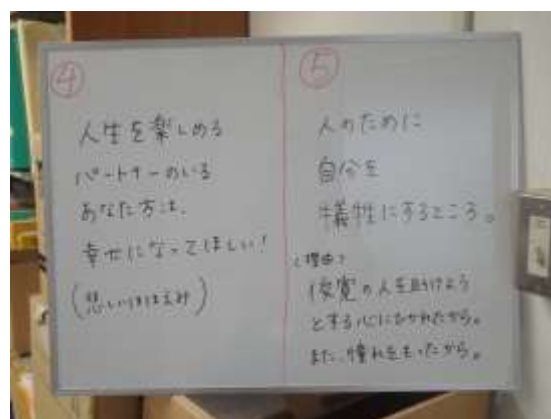 ④
人生を楽しめる
パートナーのいる
あなた方は、
幸せになってほしい!
(悲しいほほえみ)
⑤
人のために
自分を
犠牲にするところ。
(理由)
俊寛の人を助けよう
とする心にひかれたから。
また、憧れをもったから。